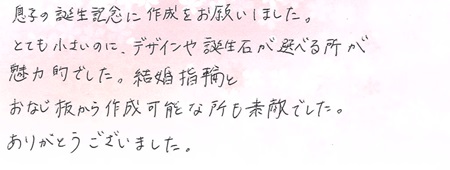 息子の誕生記念に作成をお願いしました。
とても小さいのに、デザインや誕生石が選べる所が
魅力的でした。結婚指輪と
おなじ板から作成可能な所も素敵でした。
ありがとうございました。